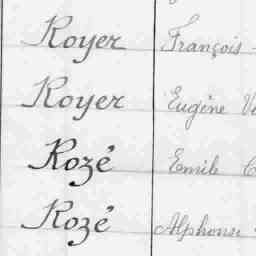 Royer François
Royer Eugène
Rozé Emile
Rozé Alphonse